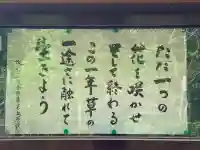 ただ一つの
花を咲かせ
そして終わる
この一年草の
一途さに触れて
生きよう